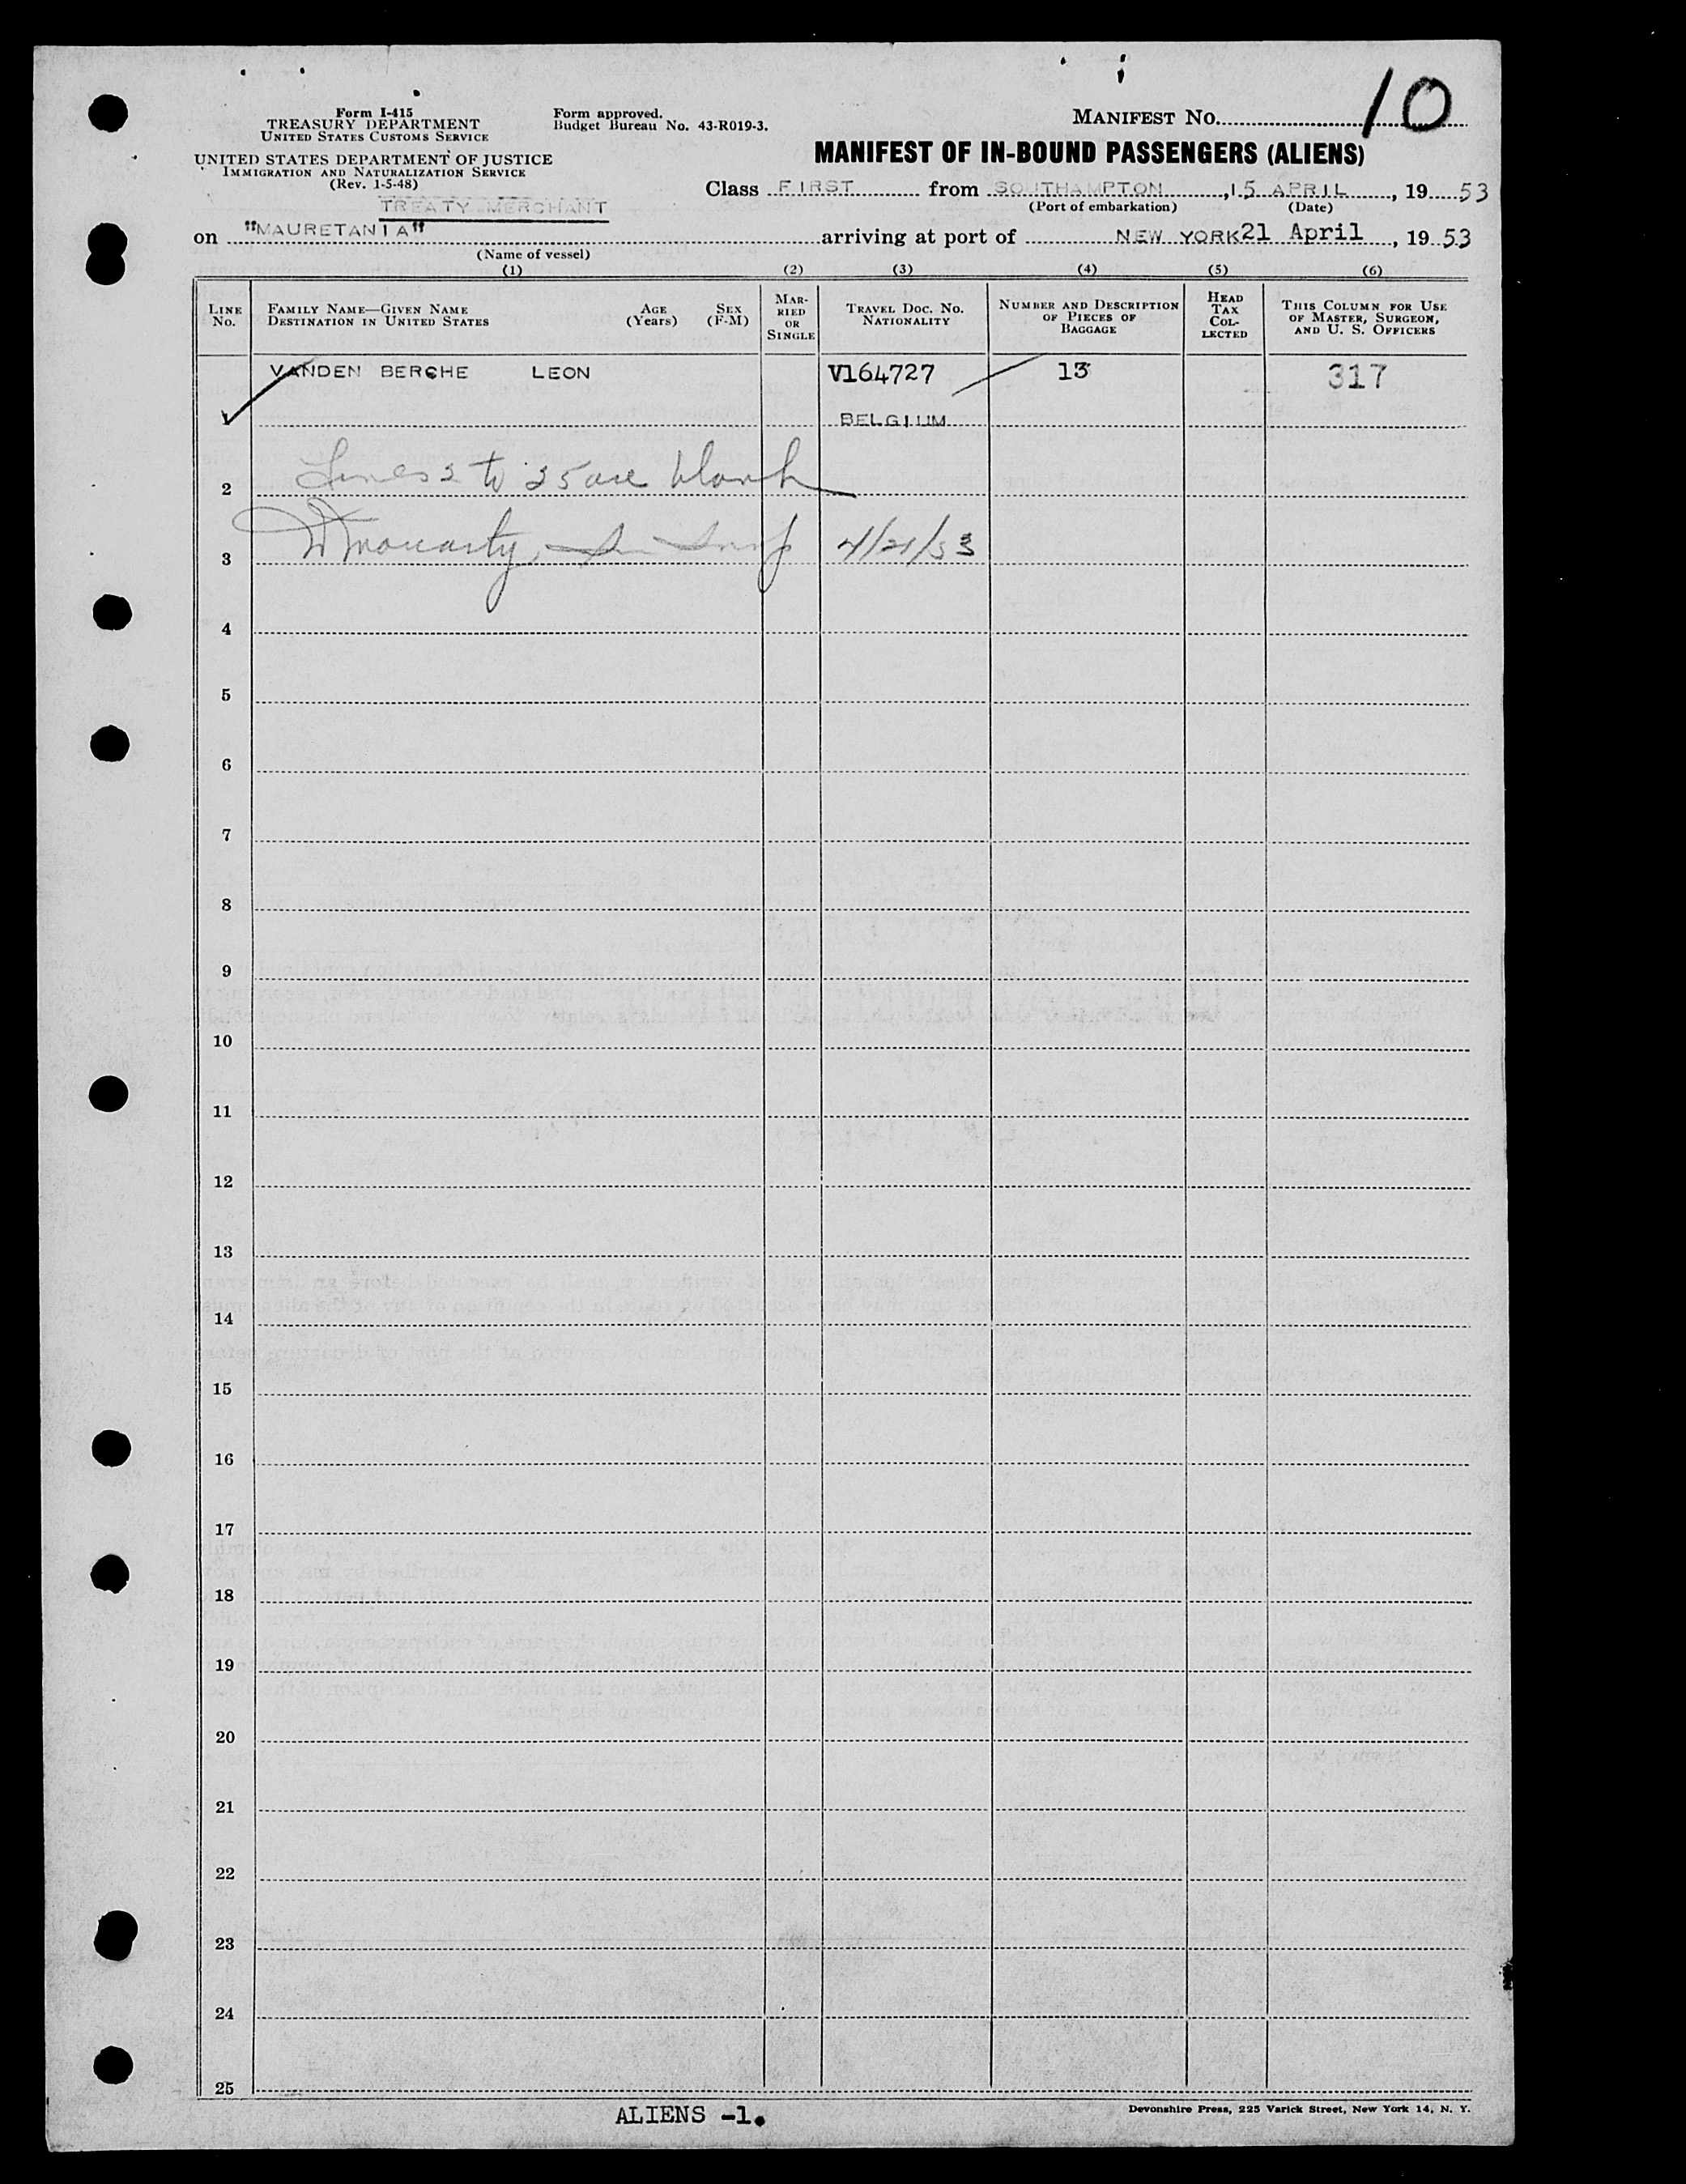 10
Form I-415
TREASURY DEPARTMENT
UNITED STATES CUSTOMS SERVICE
Form approved.
Budget Bureau No. 43-R019-3.
MANIFEST NO.
UNITED STATES DEPARTMENT OF JUSTICE
IMMIGRATION AND NATURALIZATION SERVICE
(Rev. 1-5-48)
MANIFEST OF IN-BOUND PASSENGERS (ALIENS)
Class FIRST from SOUTHAMPTON, 15 APRIL, 1953
(Port of embarkation) (Date)
TREATY MERCHANT
on "MAURETANIA" arriving at port of NEW YORK 21 April, 1953
(Name of vessel)
(1) (2) (3) (4) (5) (6)
LINE NO.
FAMILY NAME—GIVEN NAME
DESTINATION IN UNITED STATES
AGE (Years)
SEX (F-M)
MARRIED OR SINGLE
TRAVEL DOC. NO.
NATIONALITY
NUMBER AND DESCRIPTION OF PIECES OF BAGGAGE
HEAD TAX COLLECTED
THIS COLUMN FOR USE OF MASTER, SURGEON, AND U. S. OFFICERS
VANDEN BERCHE LEON V164727 13 317
1 BELGIUM
Lines 2 to 25 are blank
2
4/21/53
3
4
5
6
7
8
9
10
11
12
13
14
15
16
17
18
19
20
21
22
23
24
25
ALIENS -1.
Devonshire Press, 225 Varick Street, New York 14, N. Y.